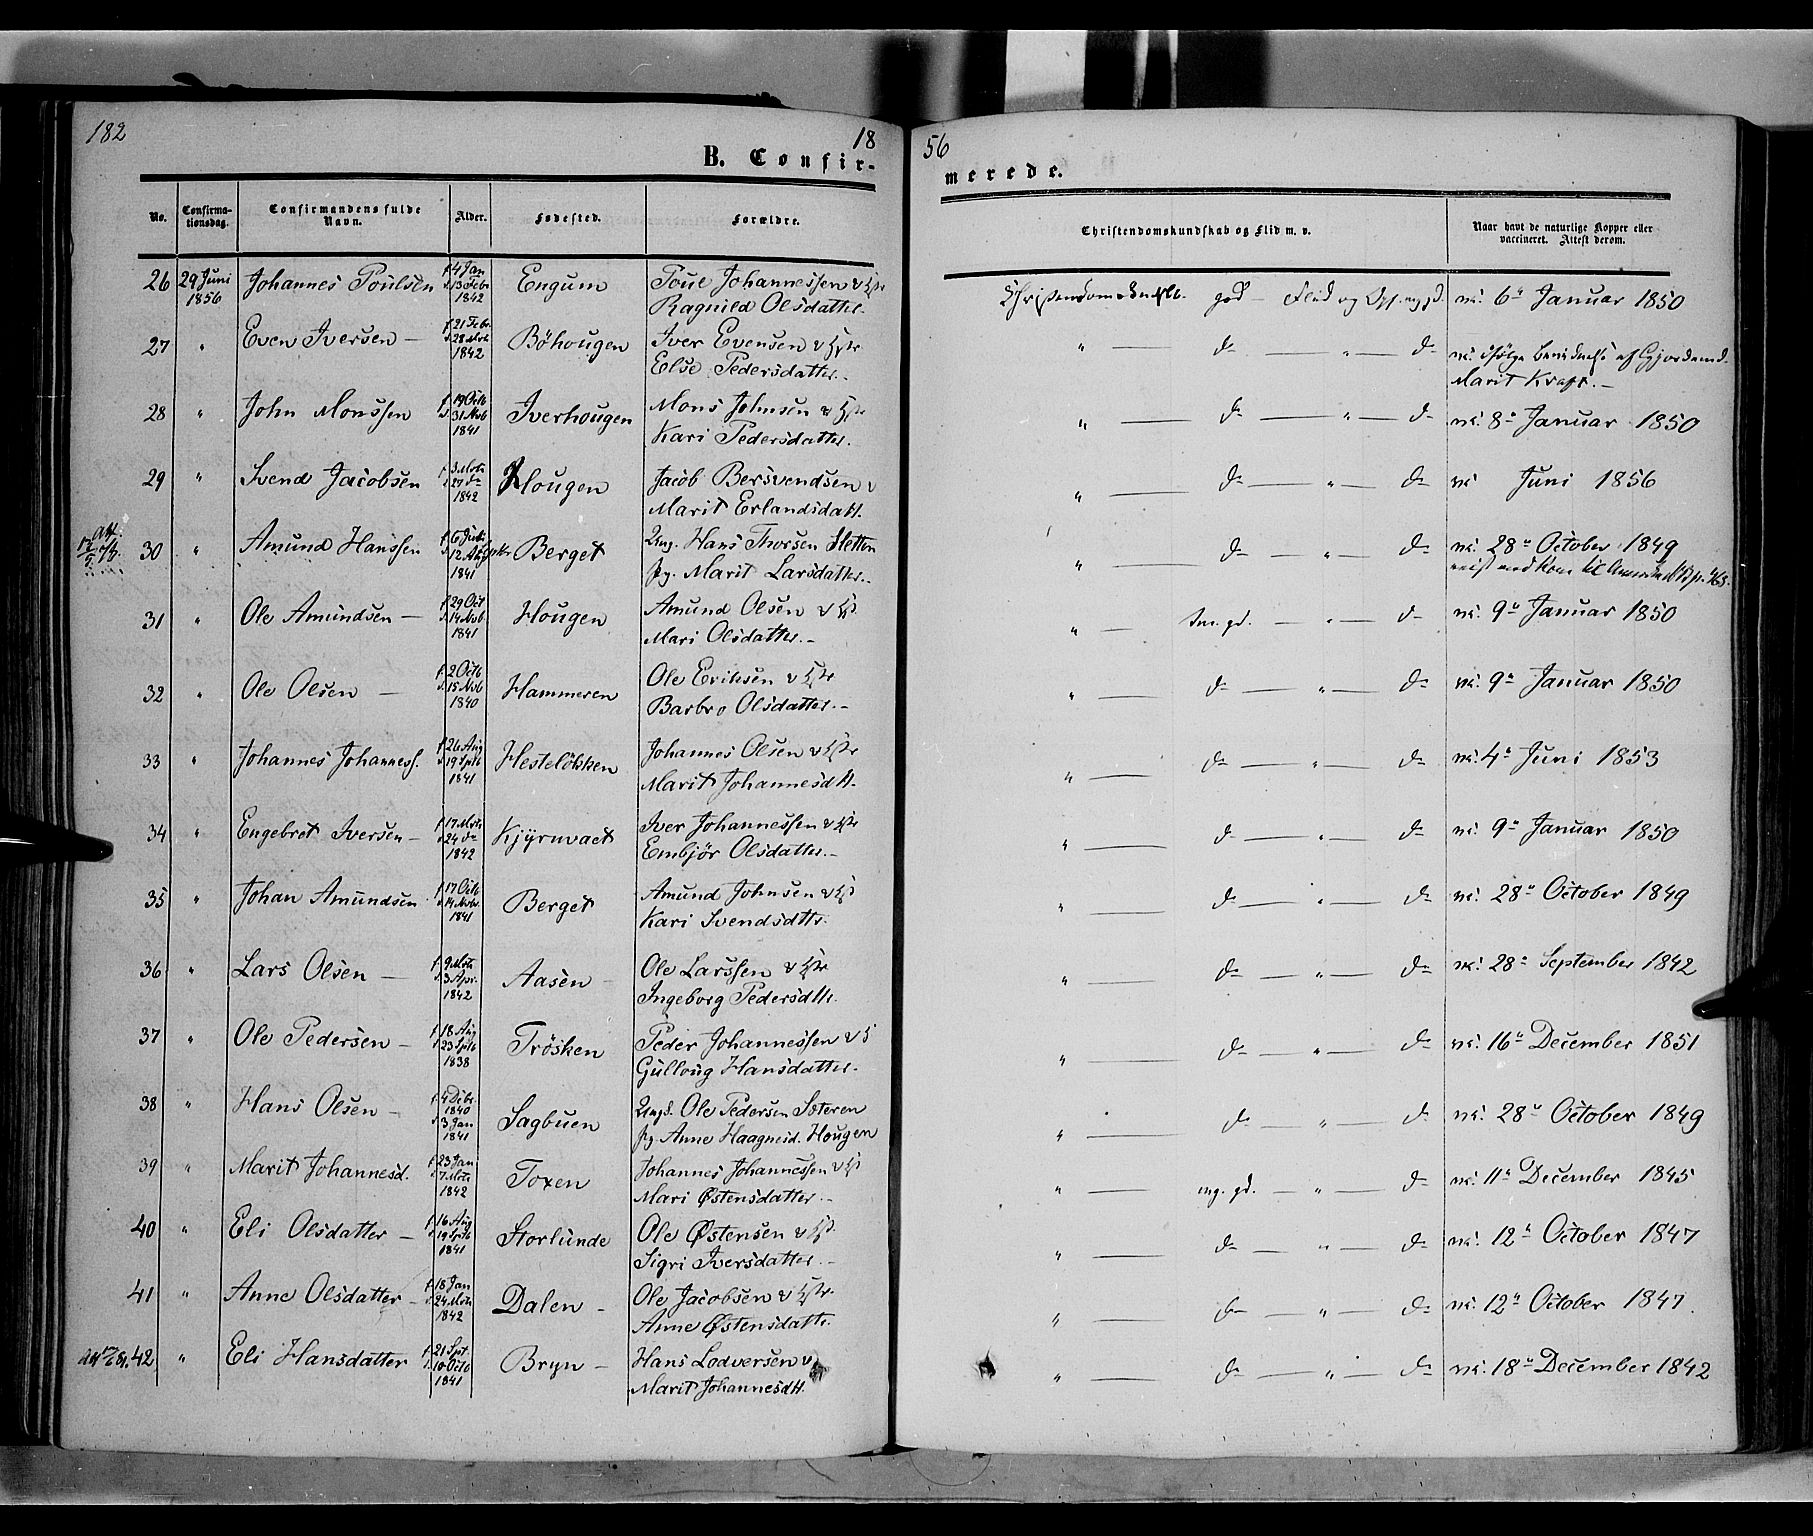 182
18
56
B. Confir-
merede.
No.
Confirma-
tionsdag.
Confirmandens fulde
Navn.
Alder.
Fødested.
Forældre.
Christendomskundskab og Flid m. v.
Naar havt de naturlige Kopper eller
vaccineret. Attest derom.
26 29 Juni 1856 Johannes Poulsen f. 4 Jan d. 13 Febr 1842 Engum Poul Johannessen Ragnild Olsdatter. god Flid og vc. 6te Januar 1850
27 " Even Iversen — f. 21 Febr. d. 28 Mrts 1842 Böhougen Iver Evensen Else Pedersdatter. " — do — " — do vc. ifølge af Gjordemd. Marit Kraft. —
28 " John Monssen f. 19 Octb d. 31 1841 Iverhougen Mons Johnsen Kari Pedersdatter. " — do — " — do vc. 8de Januar 1850
29 " Svend Jacobsen f. 3 Mrts d. 27 do 1842 Hougen Jacob Bersvendsen Marit Erlandsdatt. " — do — " — do vc Juni 1856
30 " Amund Hanssen d. 12 Aug 1841 Berget Ung. Hans Thorsen Sletten pg. Marit Larsdatter. " — do — " — do vc. 28de October 1849
31 " Ole Amundsen — f. 29 Oct d. 14 Novb 1841 Hougen Amund Olsen Mari Olsdatter. — " — gd. — " — do vc. 9de Januar 1850
32 " Ole Olsen — f. 2 Octb d. 15 Novb 1840 Hammeren Ole Eriksen Barbro Olsdatter. — " — do — " — do vc. 9de Januar 1850
33 " Johannes Johanness. f. 26 Aug d. 19 Sptb 1841 Hesteløkken Johannes Olsen Marit Johannesdtt. " — do — " — do vc. 4de Juni 1853
34 " Engebret Iversen — f. 17 Mrts d. 24 do 1842 Kjyrnvaet Iver Johannessen Embjör Olsdatter. — " — do — " — do vc. 9de Januar 1850
35 " Johan Amundsen f. 17 Octb d. 14 Novbr. 1841 Berget Amund Johnsen Kari Svendsdttr. " — do — " — do vc. 28de October 1849
36 " Lars Olsen — f. 9 Mrts d. 3 Apr. 1842 Aasen — Ole Larssen Ingeborg Pedersdttr. " — do — " — do vc. 28de September 1842
37 " Ole Pedersen — f. 18 Aug d. 23 Sptb 1838 Trösken Peder Johannessen Gulloug Hansdatter. " — do — " — do vc. 16de December 1851
38 " Hans Olsen — f. 4 Debr. 1840 d. 3 Jan 1841 Sagbuen Ungd. Ole Pedersen Sæteren pg. Anne Haagensd. Hougen " — do — " — do vc. 28de October 1849
39 " Marit Johannesd. f. 23 Jan d. 7 Mrts 1842 Toxen Johannes Johannessen Mari Østensdatter. — " — mg. gd. — " — do vc. 11te December 1845
40 " Eli Olsdatter — f. 16 Aug d. 19 Sptb 1841 Storlunde Ole Østensen Sigri Iversdatter. — " — do — " — do vc. 12te October 1847
41 " Anne Olsdatter — f. 18 Jan d. 24 Mrts 1842 Dalen — Ole Jacobsen Anne Østensdattr. " — do — " — do vc. 12te October 1847.
42 " Eli Hansdatter f. 21 Spt. d. 10 Octb 1841 Bryn — Hans Lodversen Marit Johannesdtt. " — do — " — do vc. 18de December 1842